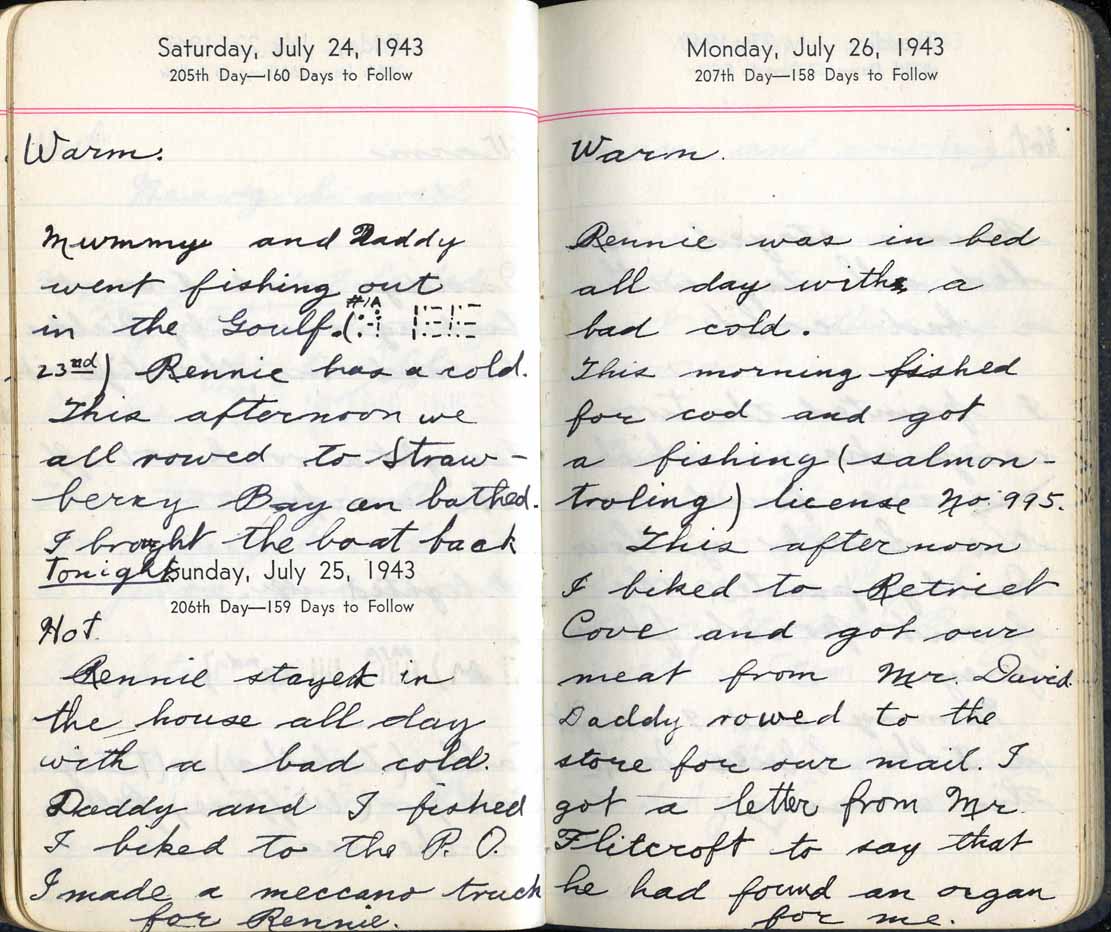 Saturday, July 24, 1943
205th Day—160 Days to Follow
Warm.
Mummy and Daddy
went fishing out
in the Goulf. (
#1A
23rd) Rennie has a cold.
This afternoon we
all rowed to Straw-
berry Bay an bathed.
I brought the boat back
Tonight
Sunday, July 25, 1943
206th Day—159 Days to Follow
Hot.
Rennie stayed in
the house all day
with a bad cold.
Daddy and I fished
I biked to the P. O.
I made a meccano truck
for Rennie.
Monday, July 26, 1943
207th Day—158 Days to Follow
Warm.
Rennie was in bed
all day with a
bad cold.
This morning fished
for cod and got
a fishing (salmon-
troling) license No: 995.
This afternoon
I biked to Retriet
Cove and got our
meat from Mr. David.
Daddy rowed to the
store for our mail. I
got a letter from Mr.
Flitcroft to say that
he had found an organ
for me.